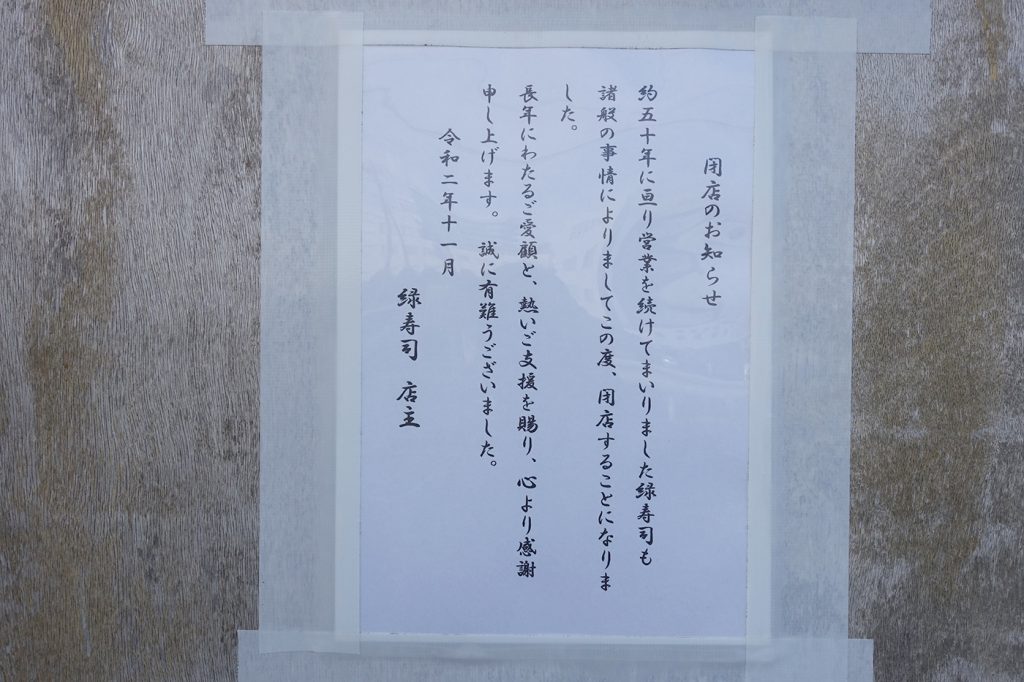 閉店のお知らせ
約五十年に亘り営業を続けてまいりました緑寿司も
諸般の事情によりましてこの度、閉店することになりま
した。
長年にわたるご愛顧と、熱いご支援を賜り、心より感謝
申し上げます。 誠に有難うございました。
令和二年十一月
緑寿司 店主